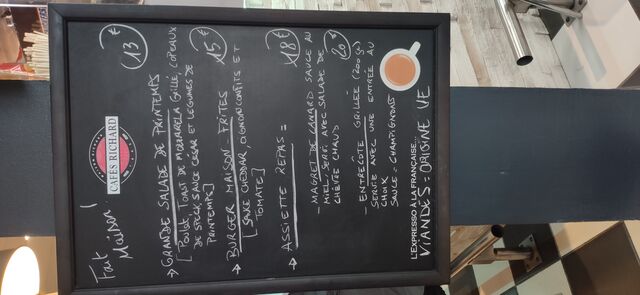 Fait
Maison!
CAFÉS RICHARD
→ GRANDE SALADE DE PRINTEMPS 13€
[Poulet, Toast de Mozzarella Grillé, Copeaux
de Speck, Sauce César et Légumes de
Printemps]
→ BURGER MAISON FRITES 15€
[Sauce Cheddar, Oignons Confits et
Tomate]
→ ASSIETTE REPAS =
- MAGRET DE CANARD SAUCE AU 18€
MIEL, SERVI AVEC SALADE DE
CHÈVRE CHAUD
- ENTRECÔTE GRILLÉE (200g) 20€
SERVIE AVEC UNE ENTRÉE AU
CHOIX
SAUCE = CHAMPIGNONS
L'EXPRESSO À LA FRANÇAISE...
VIANDES : ORIGINE UE